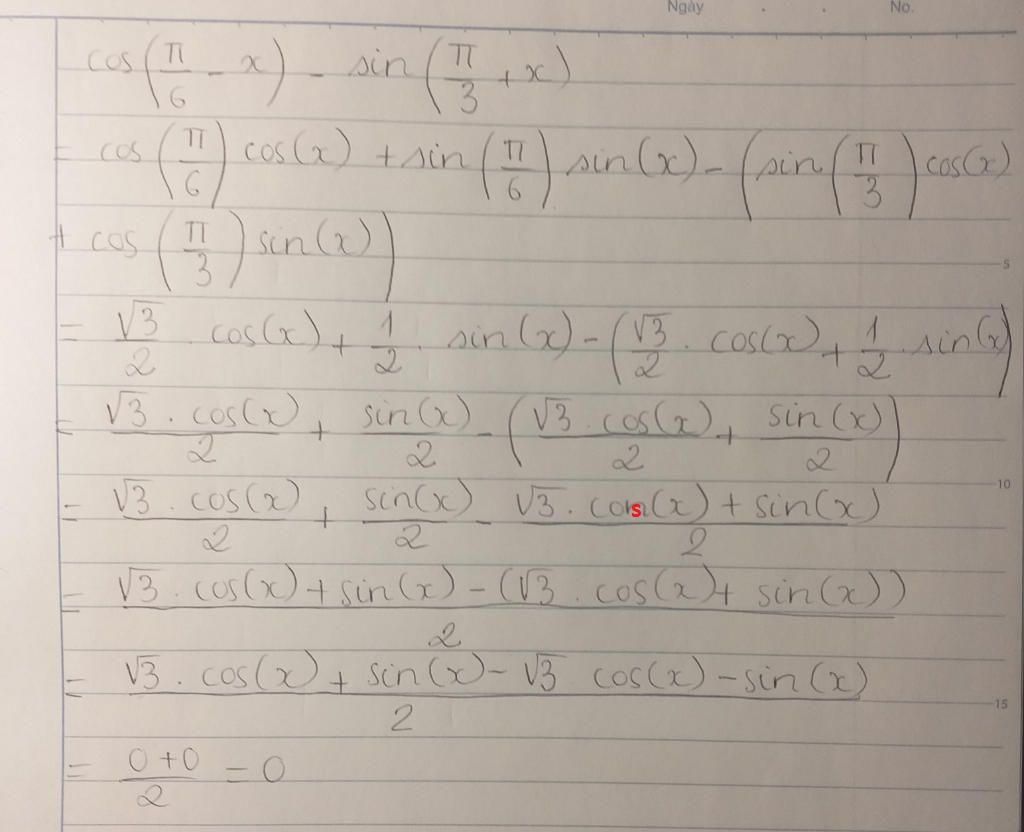 Ngày . . No.
cos(π/6 - x) - sin(π/3 + x)
= cos(π/6) cos(x) + sin(π/6) sin(x) - (sin(π/3) cos(x)
+ cos(π/3) sin(x))
= √3/2 . cos(x) + 1/2 . sin(x) - (√3/2 . cos(x) + 1/2 . sin(x))
5
= √3 . cos(x)/2 + sin(x)/2 - (√3 . cos(x)/2 + sin(x)/2)
= √3 . cos(x)/2 + sin(x)/2 - (√3 . cos(x) + sin(x))/2
10
= (√3 . cos(x) + sin(x) - (√3 . cos(x) + sin(x)))/2
= (√3 . cos(x) + sin(x) - √3 cos(x) - sin(x))/2
15
= (0 + 0)/2 = 0